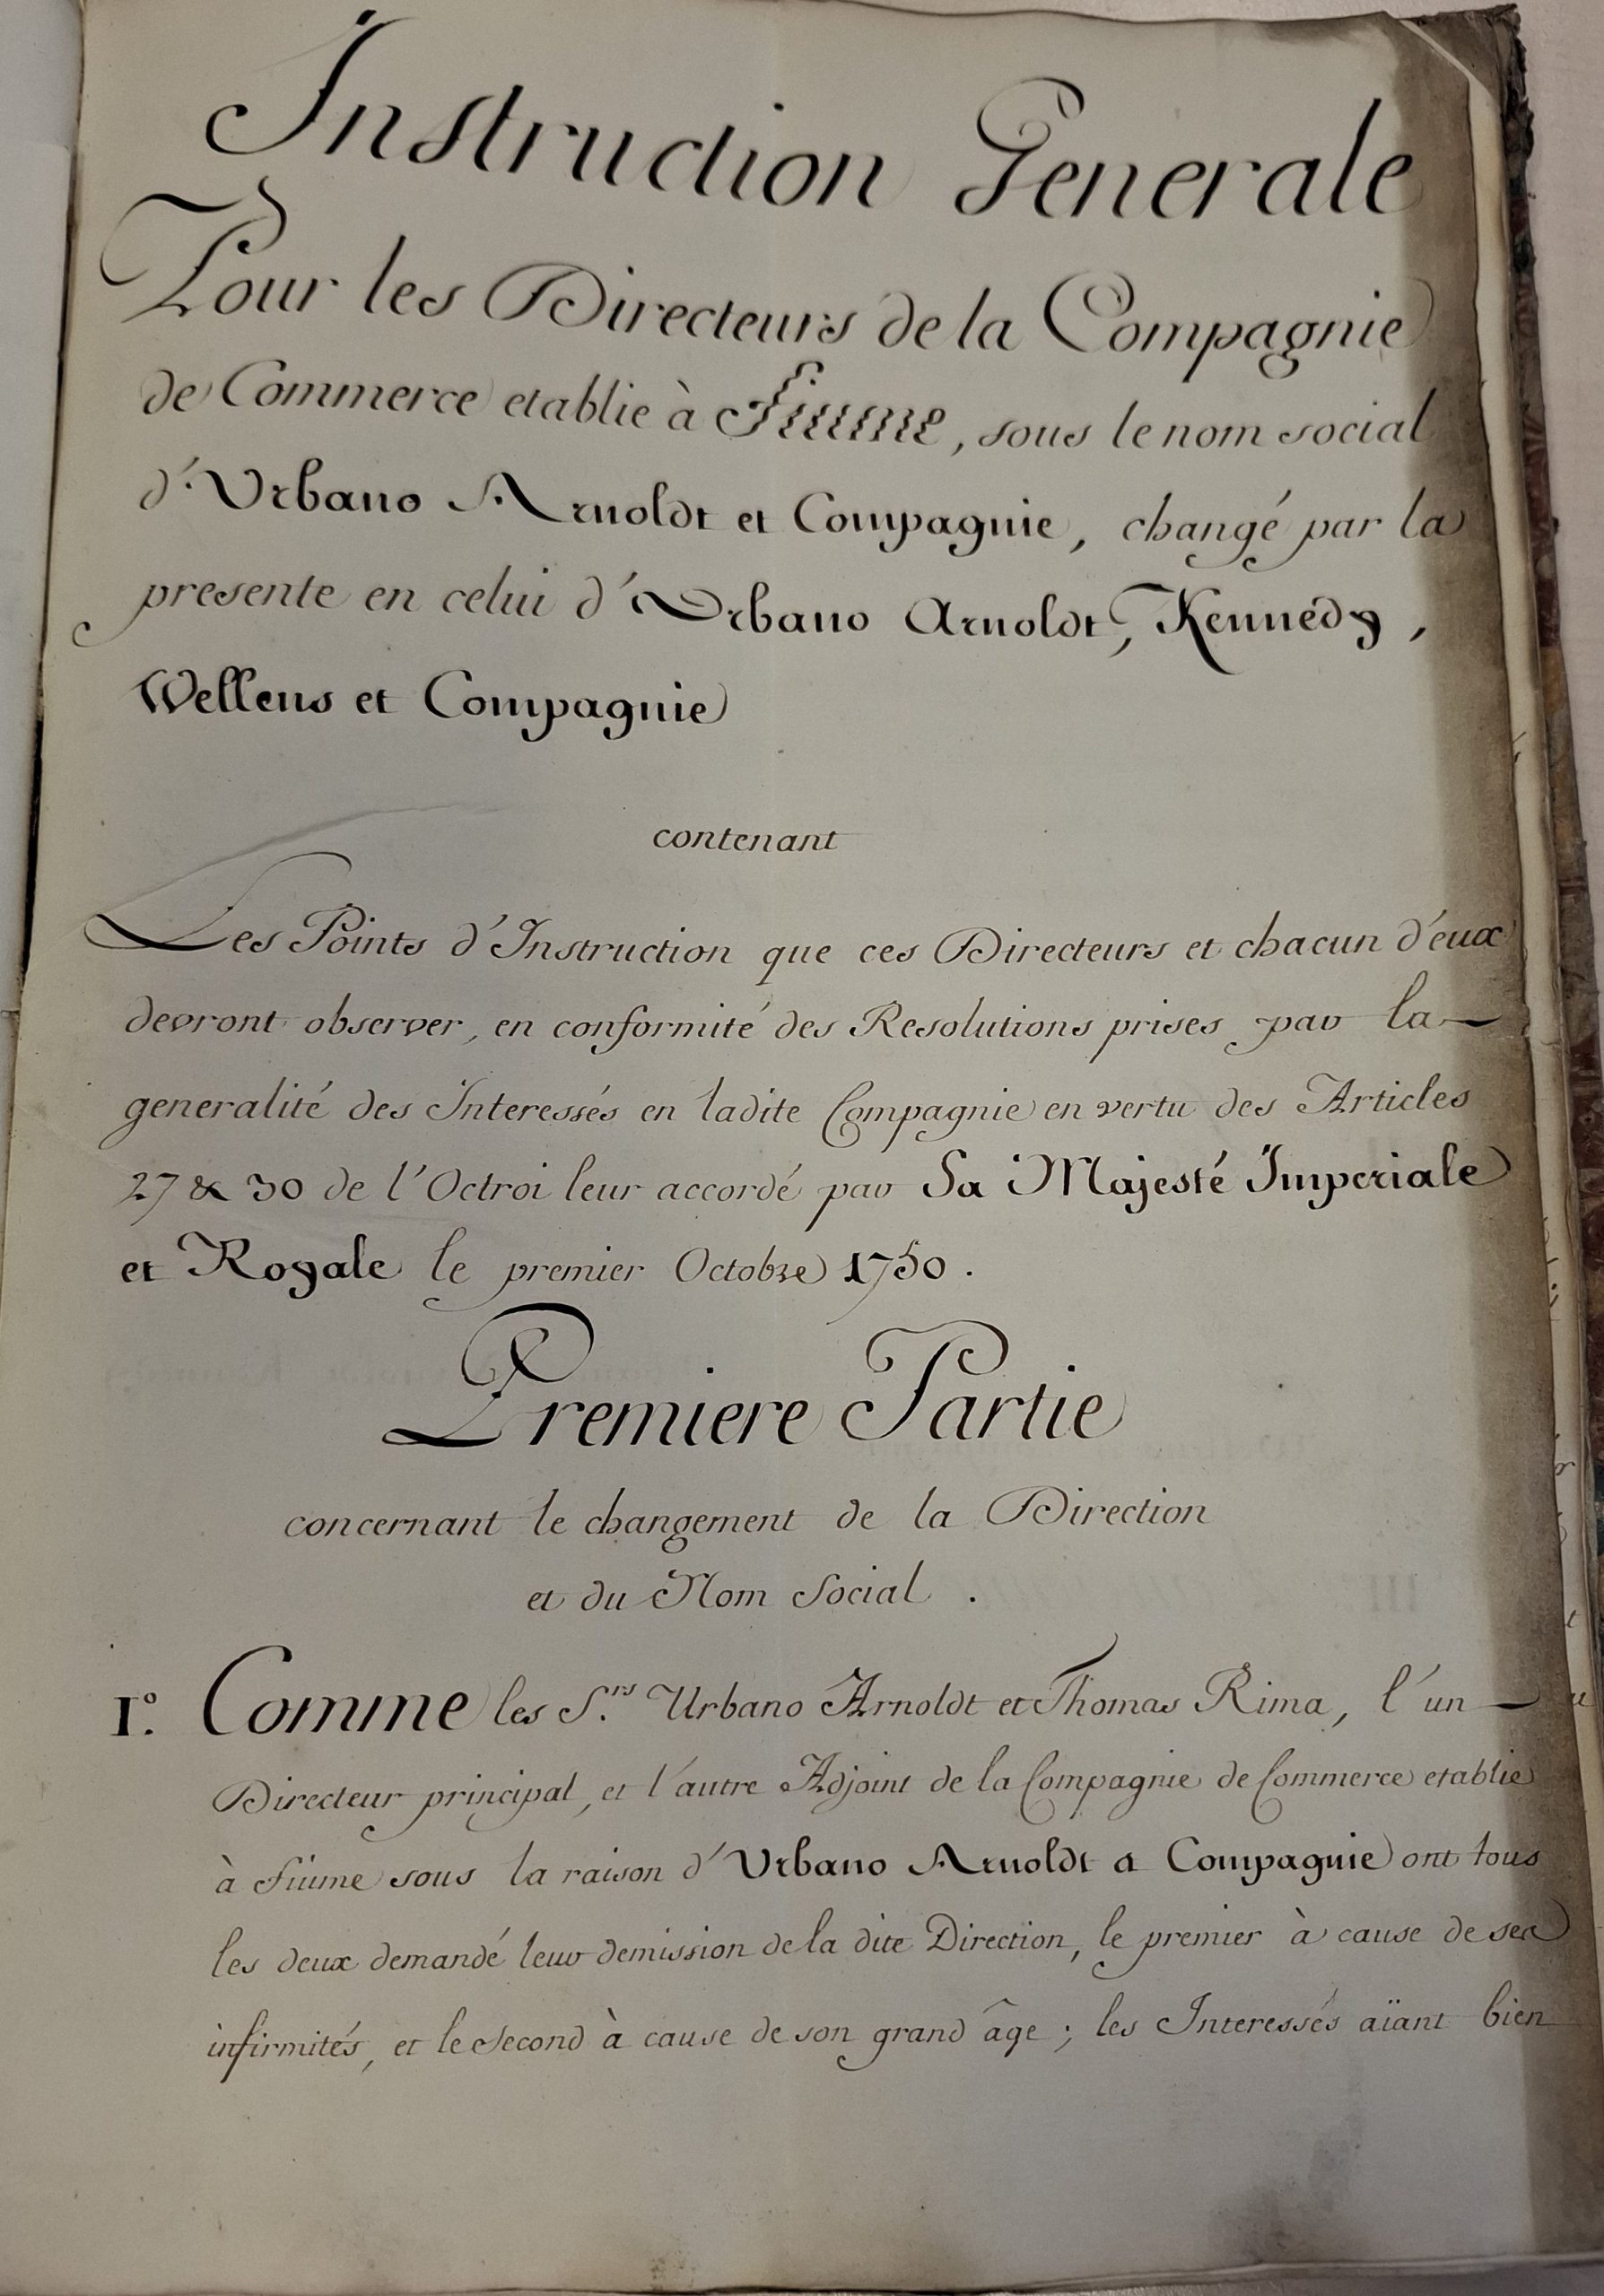 Instruction Generale
Pour les Directeurs de la Compagnie
de Commerce etablie à Fiume, sous le nom social
d'Urbano Arnoldt et Compagnie, changé par la
presente en celui d'Urbano Arnoldt, Kennedy,
Wellens et Compagnie
contenant
Les Points d'Instruction que ces Directeurs et chacun d'eux
devront observer, en conformité des Resolutions prises par la
generalité des Interessés en ladite Compagnie en vertu des Articles
27 & 30 de l'Octroi leur accordé par Sa Majesté Imperiale
et Royale le premier Octobre 1750.
Premiere Partie
concernant le changement de la Direction
et du Nom Social.
1º. Comme les S.rs Urbano Arnoldt et Thomas Rima, l'un
Directeur principal, et l'autre Adjoint de la Compagnie de Commerce etablie
à Fiume sous la raison d'Urbano Arnoldt & Compagnie ont tous
les deux demandé leur demission de la dite Direction, le premier à cause de ses
infirmités, et le second à cause de son grand âge; les Interessés aïant bien